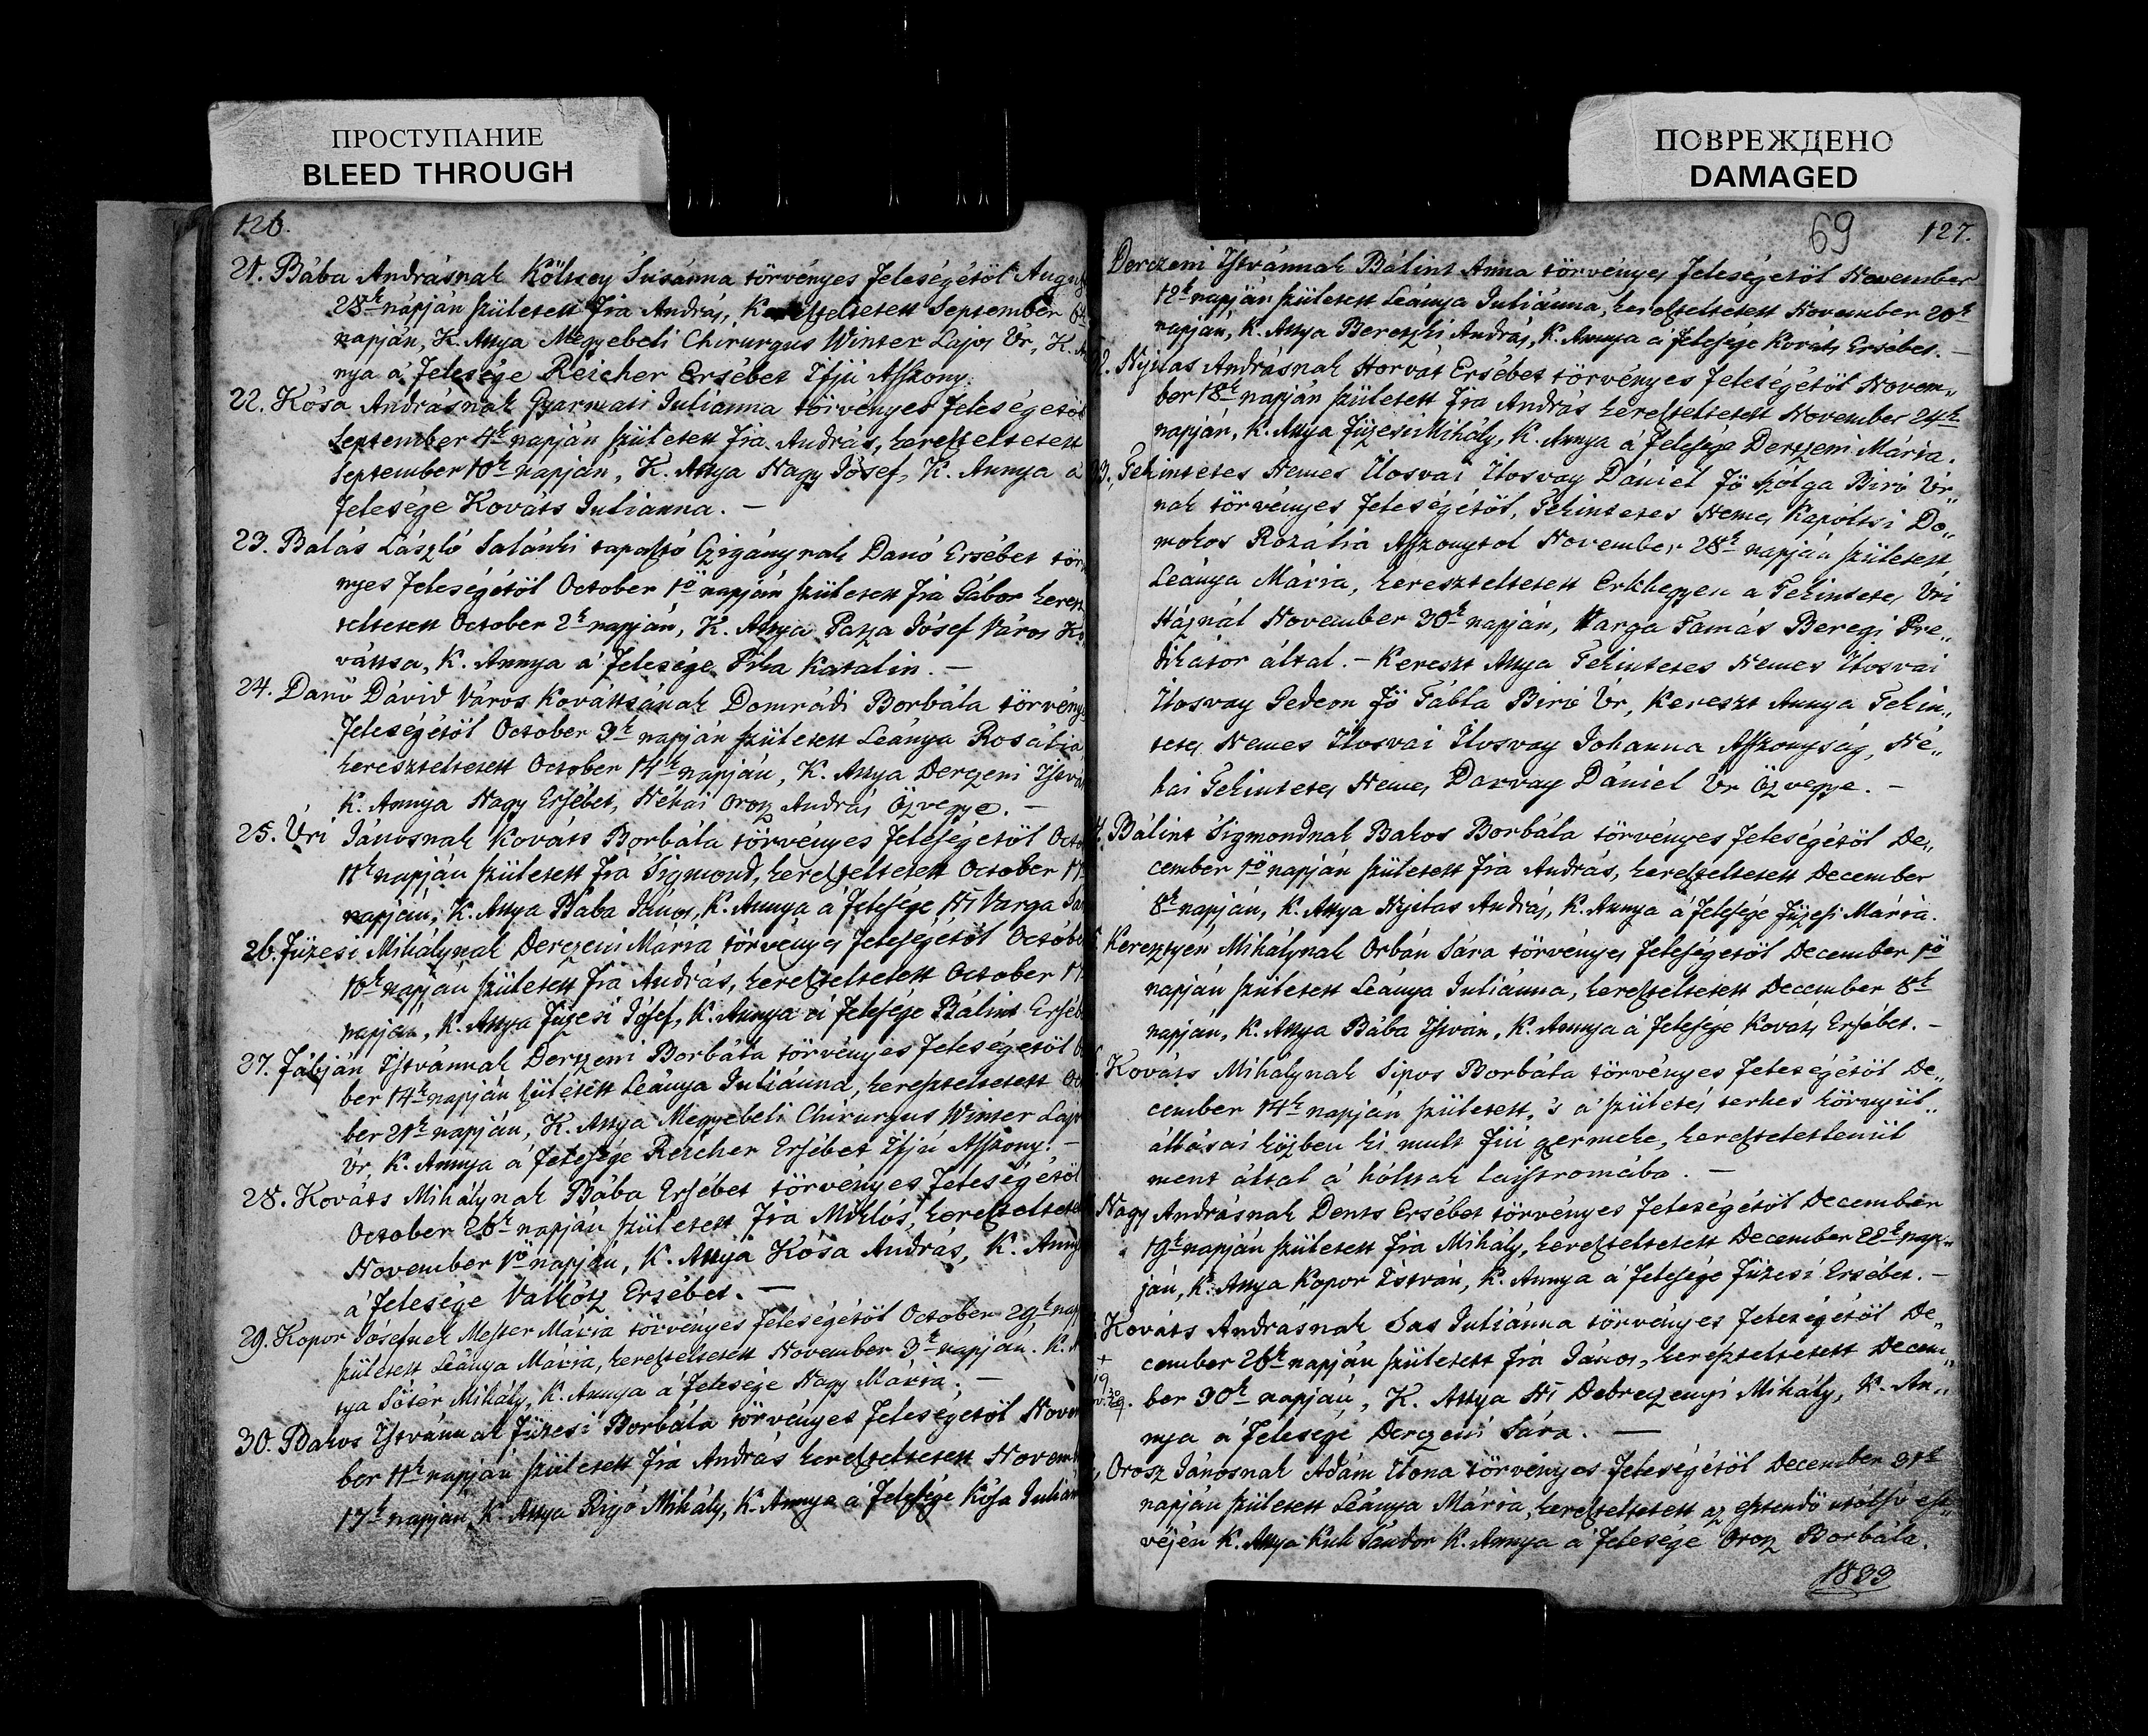 ПРОСТУПАНИЕ
BLEED THROUGH
126.
21. Bába Andrásnak Kölcsey Susánna törvényes feleségétöl August
28k napján született fia András, Kereszteltetett September 6k
napján, K. Attya Megyebeli Chirurgus Winter Lajos Úr, K. An
nya á felesége Reicher Ersébet Ifjú Asszony.
22. Kósa Andrásnak Gyarmati Juliánna törvényes feleségétöl
September 4k napján született fia András, kereszteltetett
September 10k napján, K. Attya Nagy Jósef, K. Annya á
felesége Kováts Julianna. —
23. Balás László Salánki tapasztó Czigánynak Danó Ersébet tör
nyes feleségétöl October 1ö napján született fia Gábor keresz
teltetett October 2k napján, K. Attya Jósef Város Ko
váttsa, K. Annya á felesége Katalin. —
24. Danó Dávid Város Kováttsának Domrádi Borbála törvénye
feleségétöl October 3k napján született Leánya Rosália
kereszteltetett October 14k napján, K. Attya Derczeni Istvá
K. Annya Nagy Ersébet, Néhai Orosz András Özvegye. —
25. Úri Jánosnak Kováts Borbála törvényes feleségétöl Octo
11k napján született fia Sigmond, kereszteltetett October 17
napján, K. Attya Bába János, K. Annya á felesége Ns Varga
26. Füzesi Mihálynak Derczeni Mária törvényes feleségétöl Octobe
10k napján született fia András, kereszteltetett October 17
napján, K. Attya Füzesi Jósef, K. Annya á felesége Bálint Erséb
27. Fábján Istvánnak Derczeni Borbála törvényes feleségétöl
ber 14k napján született Leánya Juliánna, kereszteltetett Oc
ber 21k napján, K. Attya Megyebeli Chirurgus Winter Lajo
Úr, K. Annya á felesége Reicher Ersébet Ifjú Asszony. —
28. Kováts Mihálynak Bába Ersébet törvényes feleségétöl
October 26k napján született fia Miklós, kereszteltetet
November 1ö napján, K. Attya Kósa András, K. Anny
á felesége Valkótz Ersébet. —
29. Kopor Jósefnek Mester Mária törvényes feleségétöl October 29k nap
született Leánya Mária, kereszteltetett November 3k napján. K. A
tya Sötér Mihály, K. Annya á felesége Nagy Mária. —
30. Bakos Istvánnak Füzesi Borbála törvényes feleségétöl Novem
ber 11k napján született fia András kereszteltetett Novemb
17k napján, K. Attya Rigó Mihály, K. Annya á felesége Kósa Julian
ПОВРЕЖДЕНО
DAMAGED
69 127.
Derczeni Istvánnak Bálint Anna törvényes feleségétöl November
12k napján született Leánya Juliánna, kereszteltetett November 20k
napján, K. Attya Bereczki András, K. Annya á felesége Kováts Ersébet. —
2. Nyilas Andrásnak Horvát Ersébet törvényes feleségétöl Novem„
ber 18k napján született fia András kereszteltetett November 24k
napján, K. Attya Füzesi Mihály, K. Annya á felesége Derczeni Mária.
3. Tekintetes Nemes Ilosvai Ilosvay Dániel Fö Szólga Biró Úr„
nak törvényes feleségétöl, Tekintetes Nemes Kapóltsi Do„
mokos Rozália Asszonytol November 28k napján született
Leánya Mária, kereszteltetett Erkhegyen a Tekintetes Úri
Háznál November 30k napján, Varga Tamás Beregi Pre„
dikátor által. – Kereszt Attya Tekintetes Nemes Ilosvai
Ilosvay Gedeon Fö Tábla Biró Úr, Kereszt Annya Tekin„
tetes Nemes Ilosvai Ilosvay Johanna Asszonyság, Né„
hai Tekintetes Nemes Darvay Dániel Úr Özvegye. –
Bálint Sigmondnak Bakos Borbála törvényes feleségétöl De„
cember 1ö napján született fia András, kereszteltetett December
8k napján, K. Attya Nyilas András, K. Annya á felesége Füzesi Mária.
Keresztyén Mihálynak Orbán Sára törvényes feleségétöl December 1ö
napján született Leánya Juliánna, kereszteltetett December 8k
napján, K. Attya Bába István, K. Annya á felesége Kováts Ersébet. –
Kováts Mihálynak Sipos Borbála törvényes feleségétöl De„
cember 14k napján született, 's á születés terhes környül„
állásai közben ki mult fiú germeke, kereszteletlenül
ment által á hóltak laistromába. —
Nagy Andrásnak Dents Ersébet törvényes feleségétöl December
19k napján született fia Mihály, kereszteltetett December 22k nap„
ján, K. Attya Kopor István, K. Annya á felesége Füzesi Ersébet. –
Kováts Andrásnak Sas Juliánna törvényes feleségétöl De„
cember 26k napján született fia János, kereszteltetett Decem„
ber 30k napján, K. Attya Ns Debreczenyi Mihály, K. An„
nya á felesége Derczeni Sára. —
Orosz Jánosnak Ádám Ilona törvényes feleségétöl December 31k
napján született Leánya Mária, kereszteltetett az esztendö utólsó est„
véjén K. Attya Kuli Sándor K. Annya á felesége Orosz Borbála.
1833